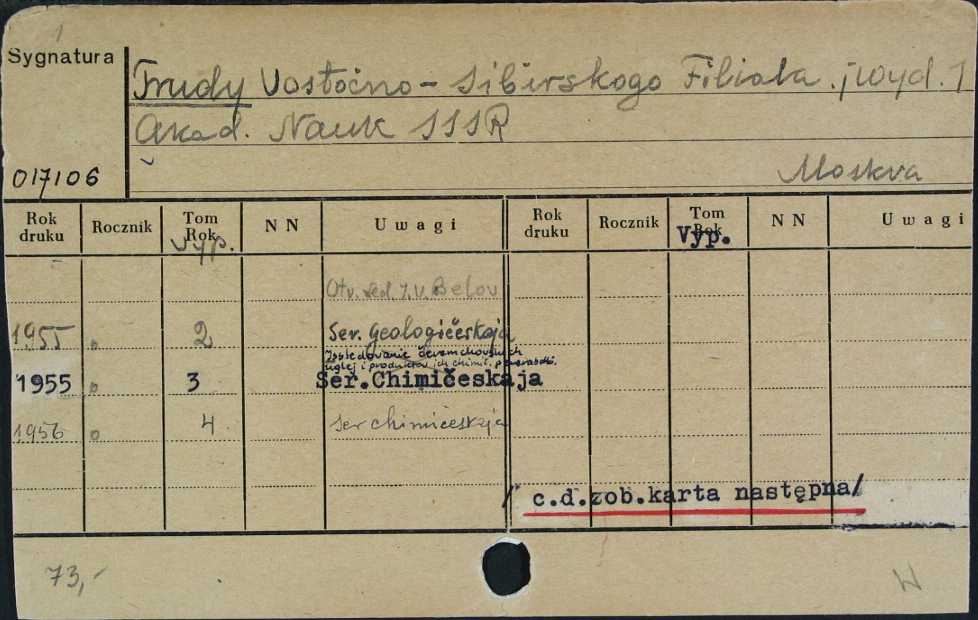 1
Sygnatura
Trudy Vostočno-Sibirskogo Filiala. j wyd. 1
Akad. Nauk SSSR
017106
Moskva
Rok druku Rocznik Tom Rok Vyp. N N Uwagi Rok druku Rocznik Tom Rok Vyp. N N Uwagi
Otv. red. I.V. Belov
1955 o 2 Ser. Geologičeskaja
Issledovanie čeremchovskich
uglej i produktov ich chimič. pererabotki.
1955 o 3 Ser.Chimičeskaja
1956 o 4 Ser chimičeskaja
/ c.d.zob.karta następna/
73,- W